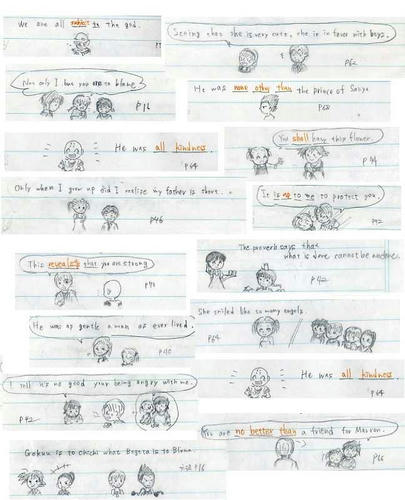 We are all subject to the god.
Not only I but you are to blame.
P16
He was all kindness.
P64
Only when I grew up did I realize my father is short.
P46
This reveals that you are strong
P70
He was as gentle a man as ever lived.
P40
I tell it's no good your being angry with me.
P42
Goku is to Chichi what Vegeta is to Bluma.
P16
Seeing that she is very cute, she is in favor with boys.
P62
He was none other than the prince of Saiya
P68
You shall have this flower.
P44
It is up to me to protect you.
P42
The proverb says that
what is done cannot be undone.
P42
She smiled like so many angels.
P64
He was all kindness.
P64
You are no better than a friend for Marron.
P66